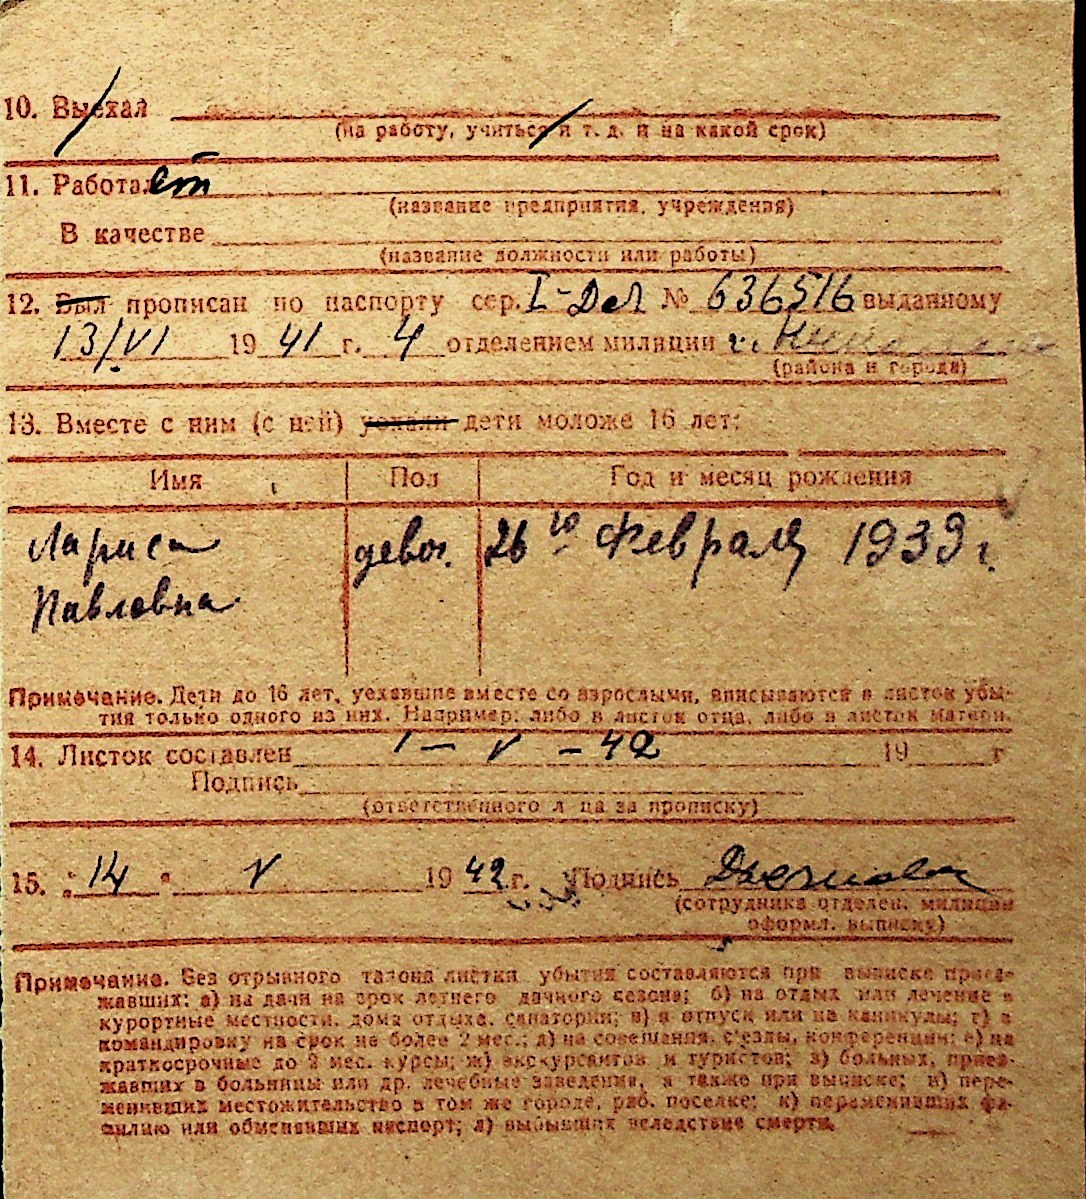 10. Выехал
(на работу, учиться и т. д. и на какой срок)
11. Работает
(название предприятия, учреждения)
В качестве
(название должности или работы)
12. Был прописан по паспорту сер. I-Дел № 636516 выданному
13/VI 19 41 г. 4 отделением милиции г.
(района и города)
13. Вместе с ним (с ней) уехали дети моложе 16 лет:
Имя Пол Год и месяц рождения
Лариса девоч. 26 го Февраля 1939 г.
Павловна
Примечание. Дети до 16 лет, уехавшие вместе со взрослыми, вписываются в листок убы-
тия только одного из них. Например: либо в листок отца, либо в листок матери.
14. Листок составлен 1 - V - 42 19 г
Подпись
(ответственного л ца за прописку)
15. „14“ V 19 42 г. Подпись
(сотрудника отделен. милиции
оформл. выписку)
Примечание. Без отрывного талона листки убытия составляются при выписке приез-
жавших: а) на дачи на срок летнего дачного сезона; б) на отдых или лечение в
курортные местности, дома отдыха, санатории; в) в отпуск или на каникулы; г) в
командировку на срок не более 2 мес.; д) на совещания, съезды, конференции; е) на
краткосрочные до 2 мес. курсы; ж) экскурсантов и туристов; з) больных, приез-
жавших в больницы или др. лечебные заведения, а также при выписке; и) пере-
менивших местожительство в том же городе, раб. поселке; к) переменивших фа-
милию или обменявших паспорт; л) выбывших вследствие смерти.